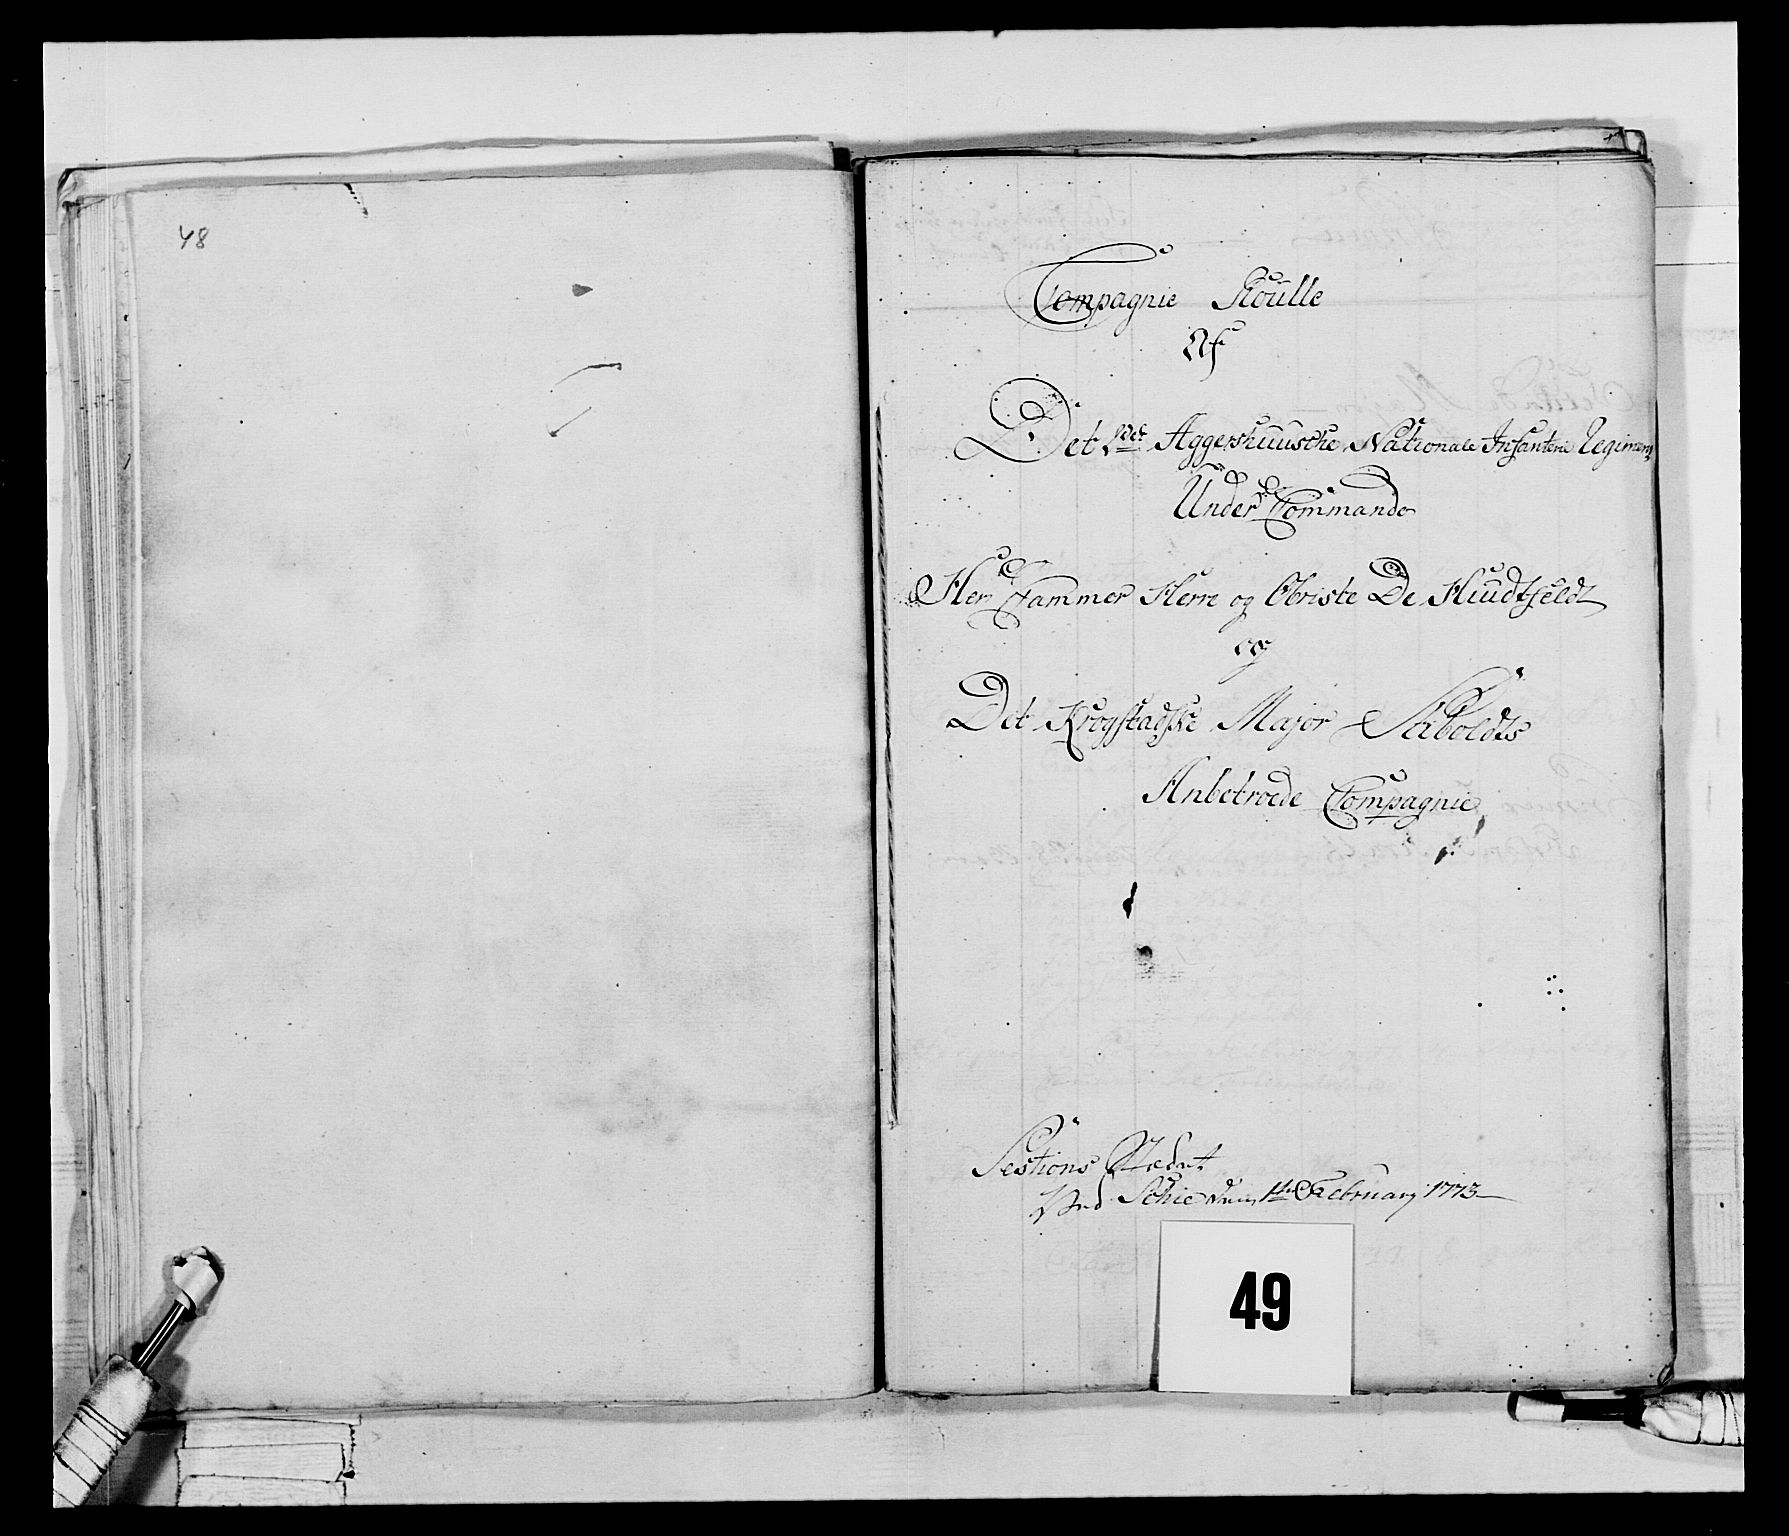 48
Compagnie Roulle
Af
Det Aggershuusche Nationale Infanterie Regiment
Under Commando
Her Cammer Herre og Obriste De Huudtfeldt
og
Det Krogstadske Major Seboldts
Anbetroede Compagnie
Sestions Stedet
Ved Schie 1te February 1773
49